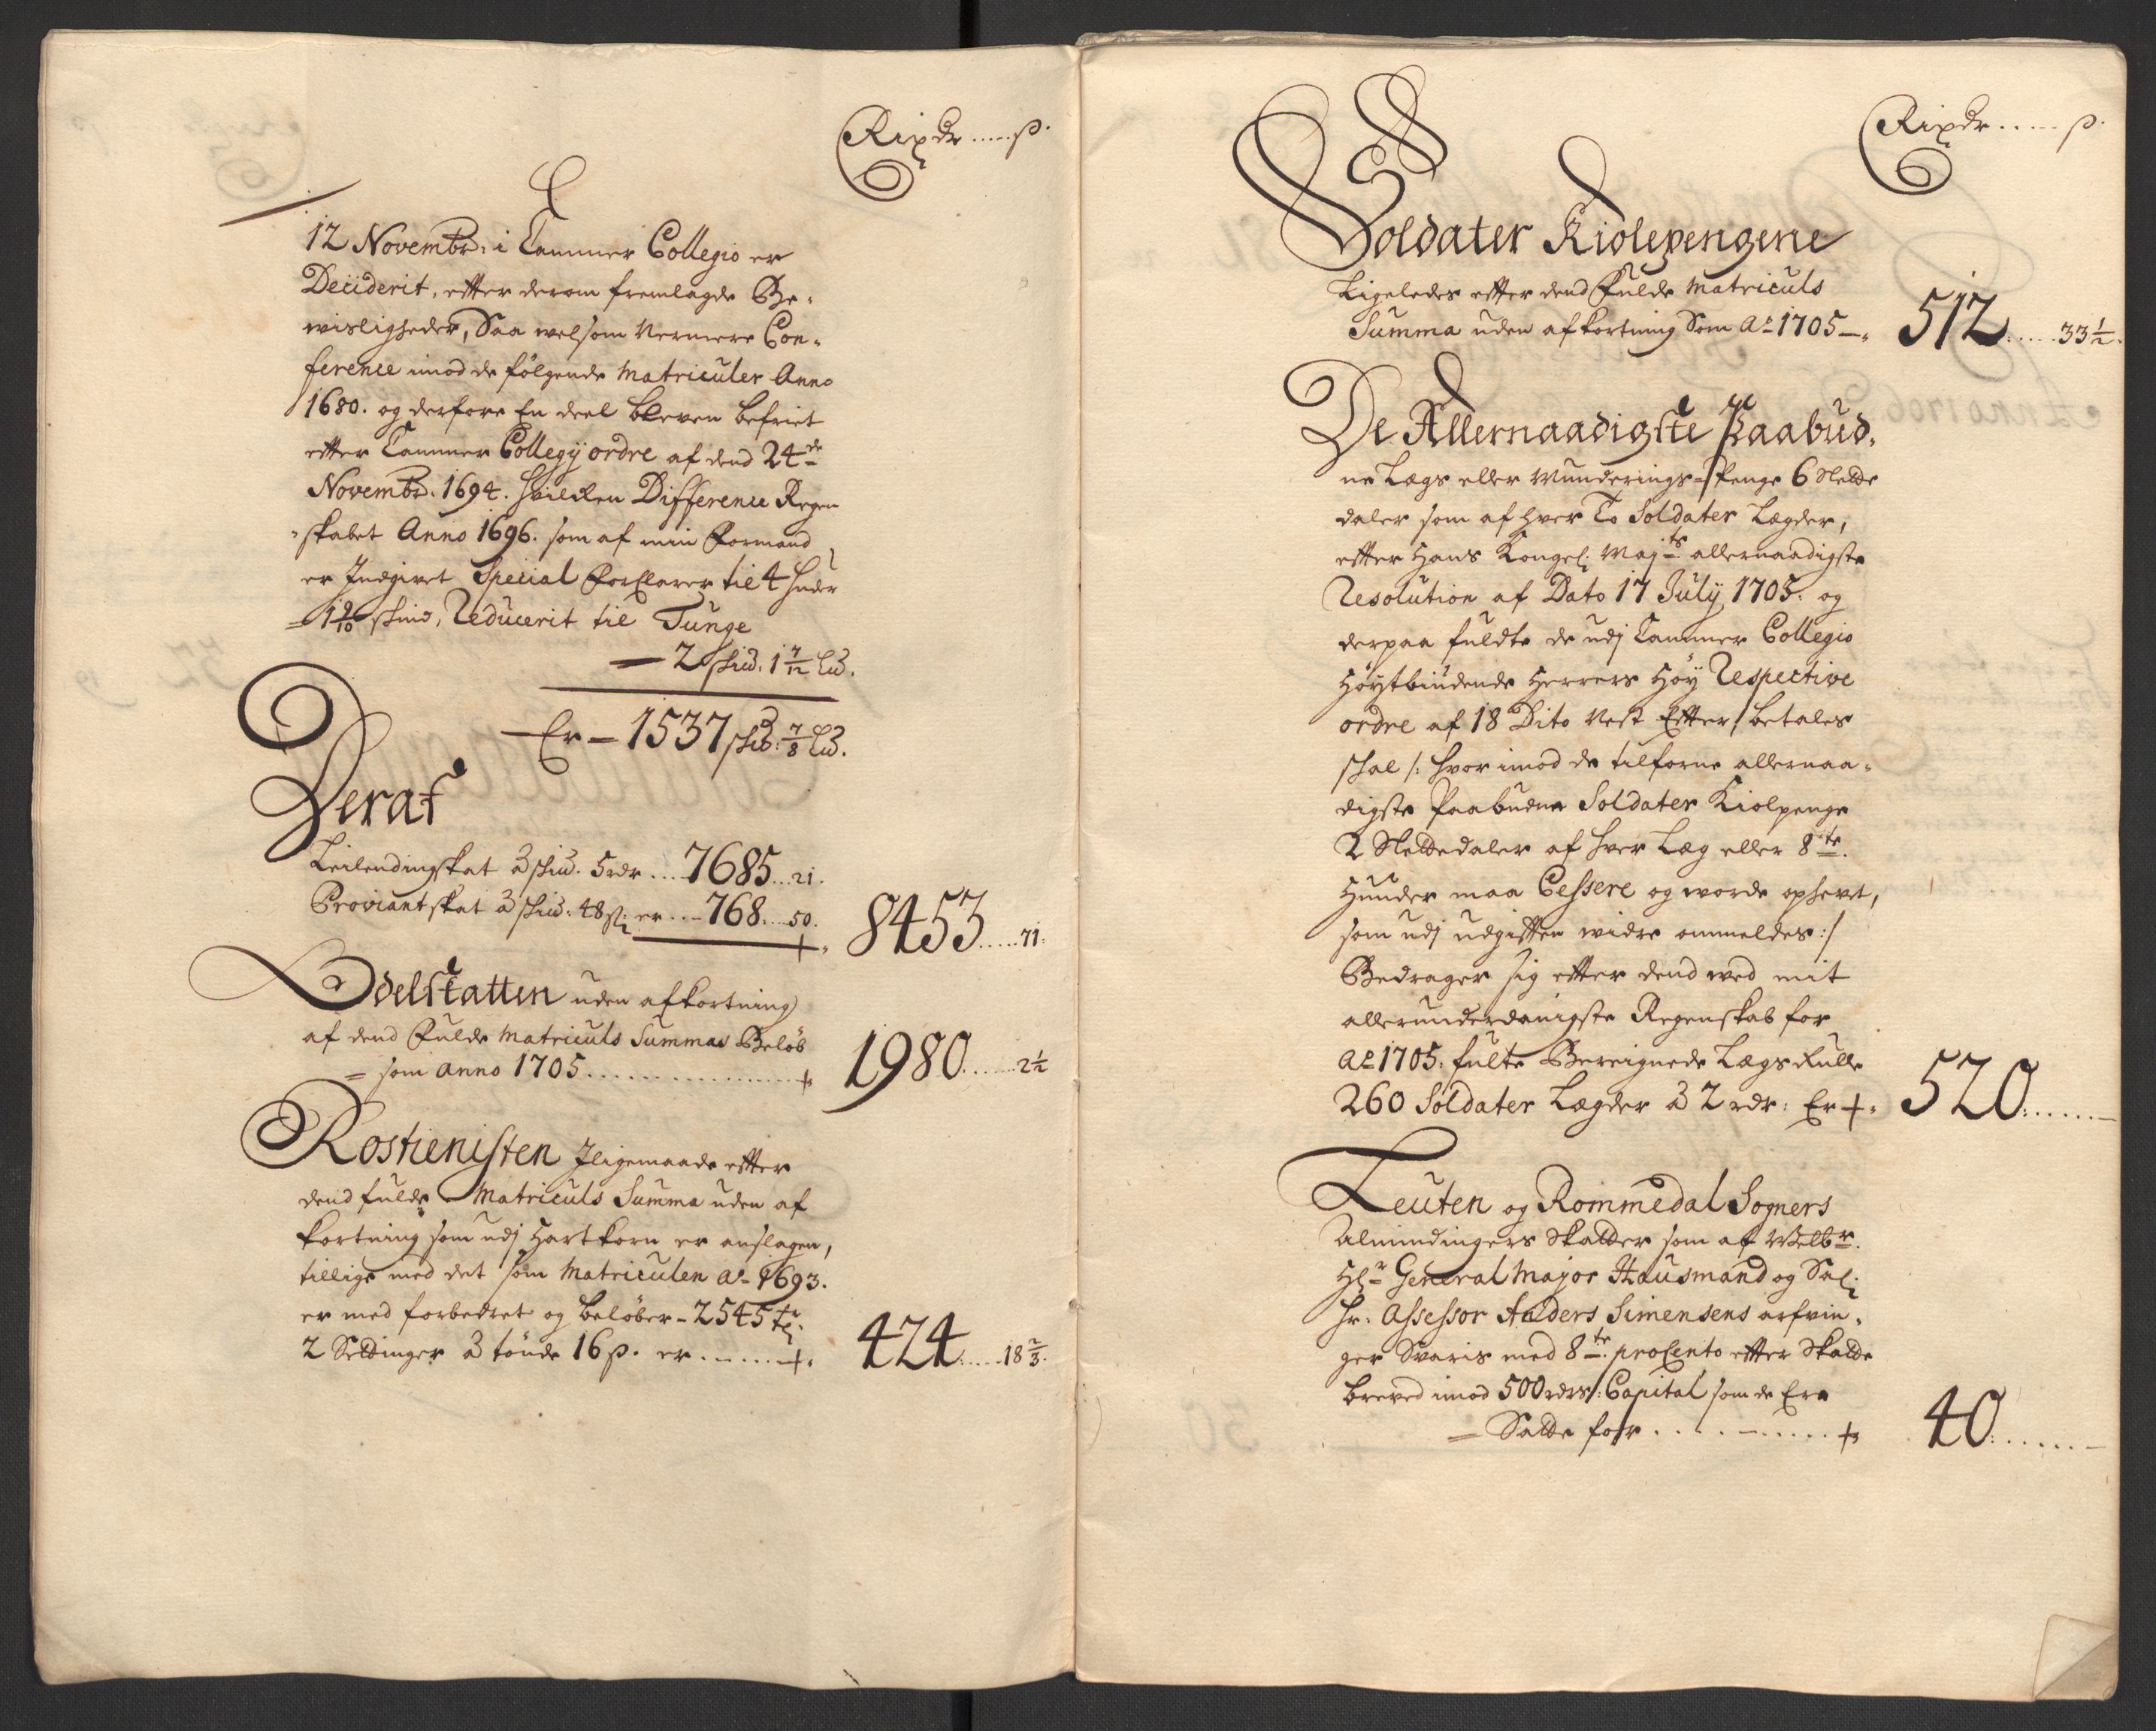 Rixdr ..... ß.
12 Novembr: i Cammer Collegio er
Deciderit, efter derom fremlagde Be-
wisligheder, Saa wel som Nermere Con-
ference imod de følgende Matriculer Anno
1680. og derfore En deel bleven befriet
efter Cammer Collegy ordre af dend 24de
Novembr. 1694. hvilken Difference Regen
skabet Anno 1696. som af min Formand
er Indgivet Special Forklarer til 4 hudr
1 9/10 skind, Reducerit til Tunge
— 2 skid: 1 7/12 Lid.
Er — 1537 skid: 7/8 Lid.
Deraf
Leilendingskat à skid. 5 rdr .... 7685 ... 21.
Proviantskat à skid: 48 ß: er ... 768 .... 50. 8453 ..... 71.
Odelskatten uden afkortning
af dend Fulde Matriculs Summas Beløb
= som anno 1705 ................ 1980 ...... 2½
Rostienisten Iligemaade efter
dend fulde Matriculs Summa uden af
kortning som udj Hartkorn er anslagen,
tillige med det som Matriculen Ao 1693.
er med forbedret og beløber - 2545 tr:
2 Settinger à tønde 16 ß. er ....... 424 ..... 18 2/3.
Rixdr ..... ß.
Soldater Kiolepengene
Ligeledes efter dend Fulde Matriculs
Summa uden afkortning Som Ao 1705 — 512 ..... 33½.
De Allernaadigste Paabud-
ne Lægs eller Munderings-Penge 6 Slette
daler som af hver To Soldater Lægder,
efter Hans Kongel: Majts allernaadigste
Resolution af Dato 17 July 1705. og
derpaa fuldte de udj Cammer Collegio
Høytbiudende Herrers Høy Respective
ordre af 18 Dito Nest Efter, betales
skal /: hvor imod de tilforne allernaa-
digste Paabudne Soldater Kiolpenge
2 Slettedaler af hver Læg eller 8te
Hunder maa Cessere og worde ophevet,
som udj udgiften widre ommeldes :/
Bedrager sig efter dend wed mit
allerunderdanigste Regenskab for
Ao 1705. fulte Bereignede Lægs Rulle
260 Soldater Lægder à 2 rdr: Er 520 .......
Leuten og Rommedal Sogners
Almindingers Skatter som af Welbr.
Hr General Major Hausmand og Sal:
Hr: Assessor Anders Simensens arfvin-
ger Svaris med 8te procento efter Skatte
breved imod 500 rdrs: Capital som de Ere
= Satte for .......... 40 .......